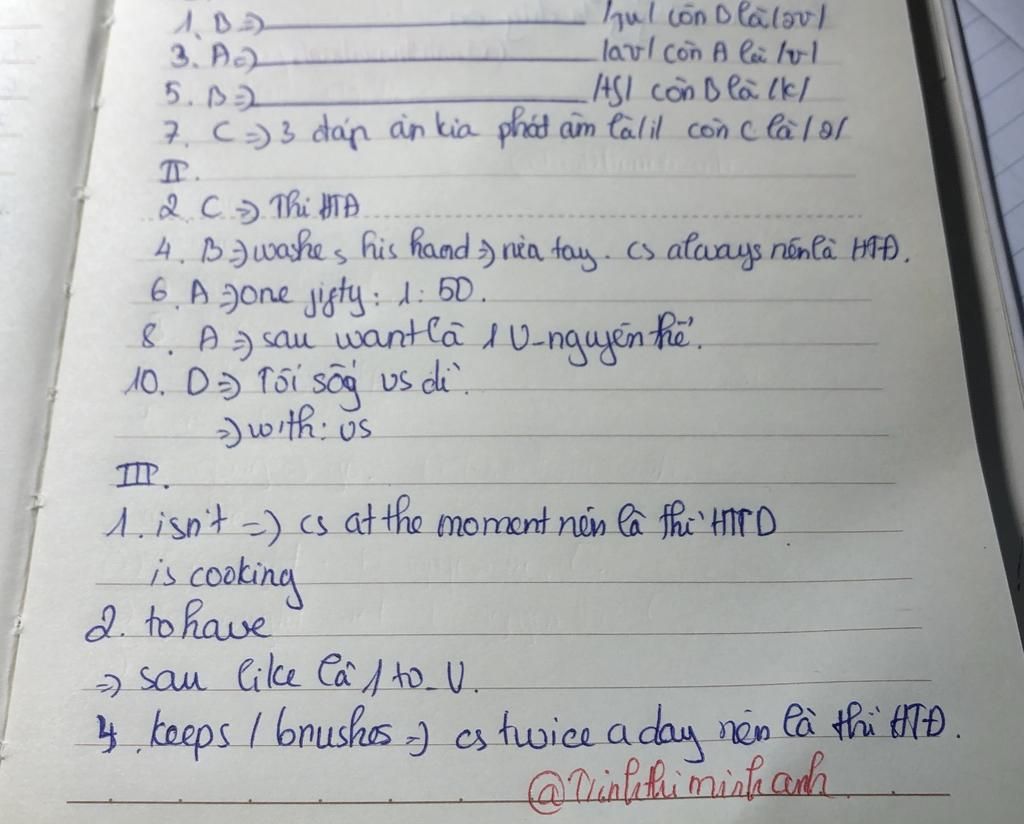 1. B => ________ /ʒu/ còn D là /əʊ/
3. A => ________ /aʊ/ còn A là /ʊ/
5. B => ________ /tʃ/ còn B là /k/
7. C => 3 đáp án kia phát âm là /i/ còn C là /ə/
II.
2 C => Thì HTĐ
4. B => washes his hand => rửa tay. cs always nên là HTĐ.
6. A => one fifty: 1: 50.
8. A => sau want là 1 V-nguyên thể.
10. D => Tôi sốg vs dì.
=> with: vs
III.
1. isn't => cs at the moment nên là thì HTTD
is cooking
2. to have
=> sau like là 1 to_V.
4. keeps / brushes => cs twice a day nên là thì HTĐ.
@Trinhthiminhanh